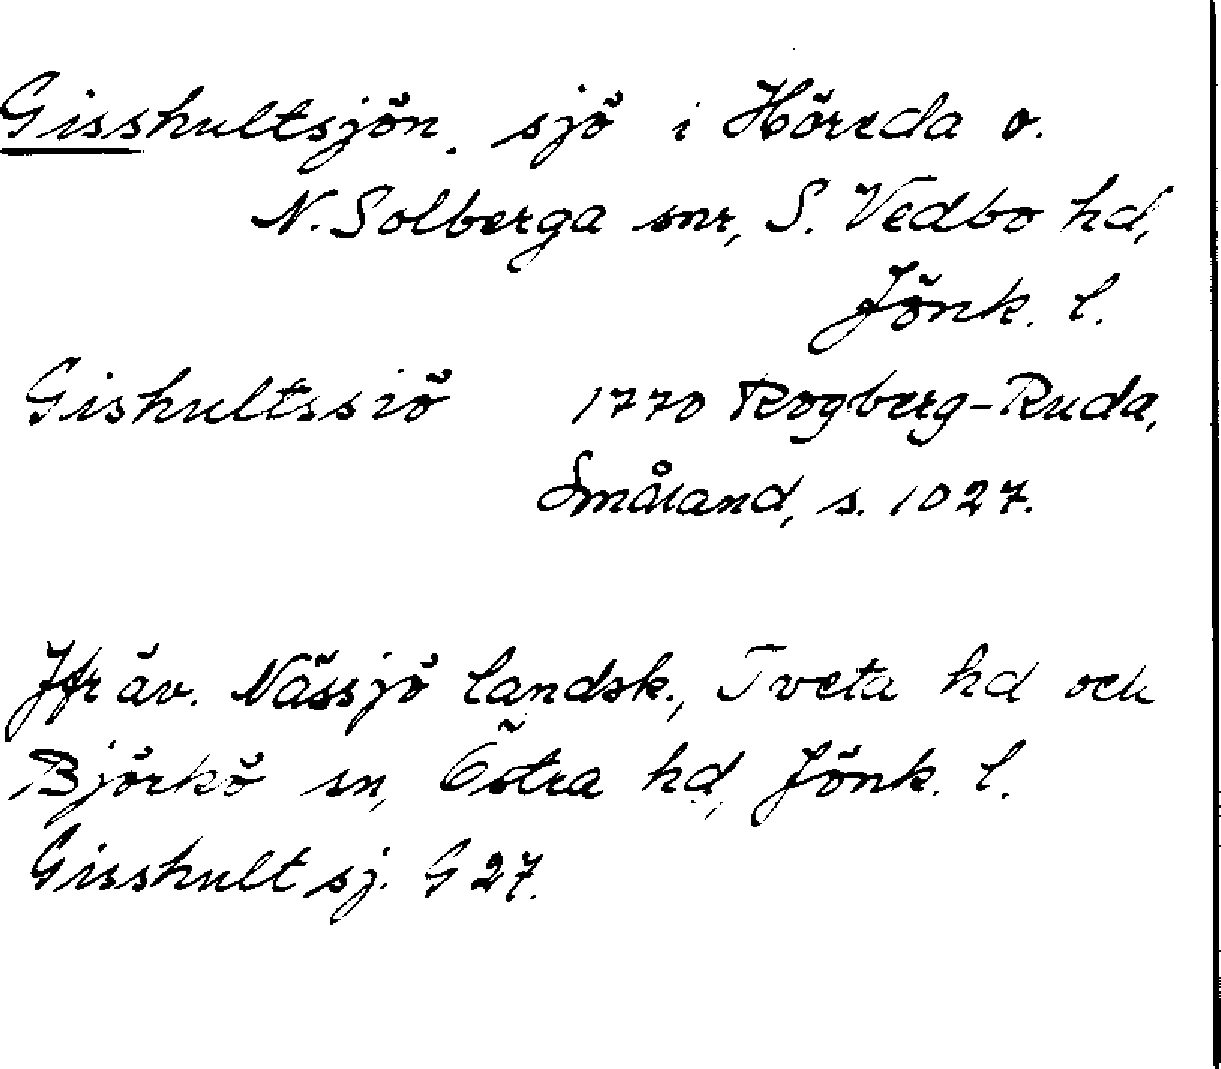 Gisshultsjön. sjö i Höreda o.
N. Solberga snr, S. Vedbo hd,
Jönk. l.
Gishultssiö 1770 Rogberg-Ruda,
Småland, s. 1027.
Jfr äv. Nässjö landsk., Tveta hd och
Björkö sn, Östra hd, Jönk. l.
Gisshult sj. G 27.